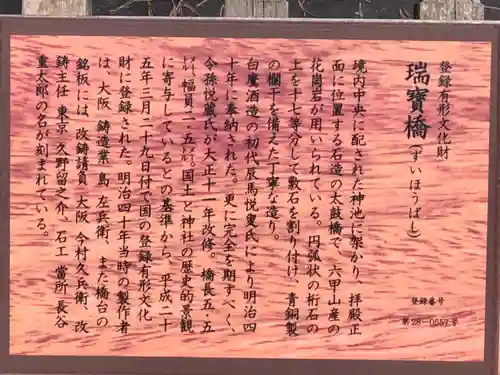 登録有形文化財
瑞寶橋(ずいほうばし)
境内中央に配された神池に架かり、拝殿正
面に位置する石造の太鼓橋で、六甲山産の
花崗岩が用いられている。円弧状の桁石の
上を十七等分して敷石を割り付け、青銅製
の欄干を備えた丁寧な造り。
白鷹酒造の初代辰馬悦叟氏により明治四
十年に奉納された。更に完全を期すべく、
令孫悦蔵氏が大正十一年改修。橋長五・五
㍍、幅員二・五㍍。国土と神社の歴史的景観
に寄与しているとの基準から、平成二十
五年三月二十九日付で国の登録有形文化
財に登録された。明治四十年当時の製作者
は、大阪 鋳造業 島 左兵衛、また橋台の
銘板には、改鋳請負 大阪 今村久兵衛、改
鋳主任 東京 久野留之介、石工 當所 長谷
重太郎の名が刻まれている。
登録番号
第28-0557号